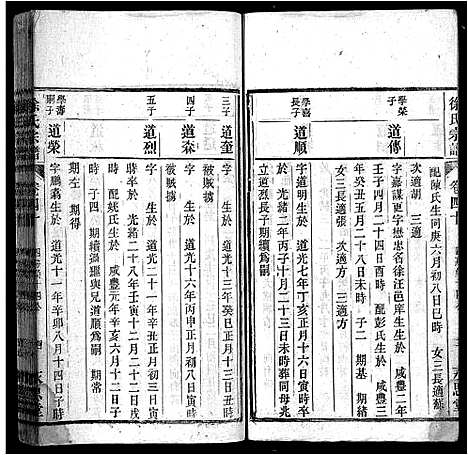 徐氏宗譜
卷四十
配陳氏生同庚六月初八日巳時 女三長適蘇
次適胡 三適
學榮子 道傳
字嘉謀更字懋忠名徐汪邑庠生生於 咸豐二年
壬子四月二十四日酉時 配彭氏生於 咸豐二
年癸丑五月二十八日未時 子二 期基 期續
女三長適張 次適 三適方
學喜長子 道順
字道明生於 道光七年丁亥正月十六日寅時
於 光緒二年丙子十月二十三日未時葬同母兆
立道烈長子期續為嗣
三子 道奎
字 生於 道光十三年癸巳正月十三日寅時
被賊擄
四子 道森
字 生於 道光十六年丙申正月初八日寅時
被賊擄
五子 道烈
字 生於 道光二十一年辛丑正月初三日寅
時卒於 光緒二十八年壬寅十二月二十三日寅
時 配姚氏生於 咸豐元年辛亥六月十二日
時 子四 期續過繼與兄道順為嗣 期常
期左 期得
學壽嗣子 道榮
字鵬霄生於 道光十一年辛卯八月十四日子時
徐氏宗譜
卷四十